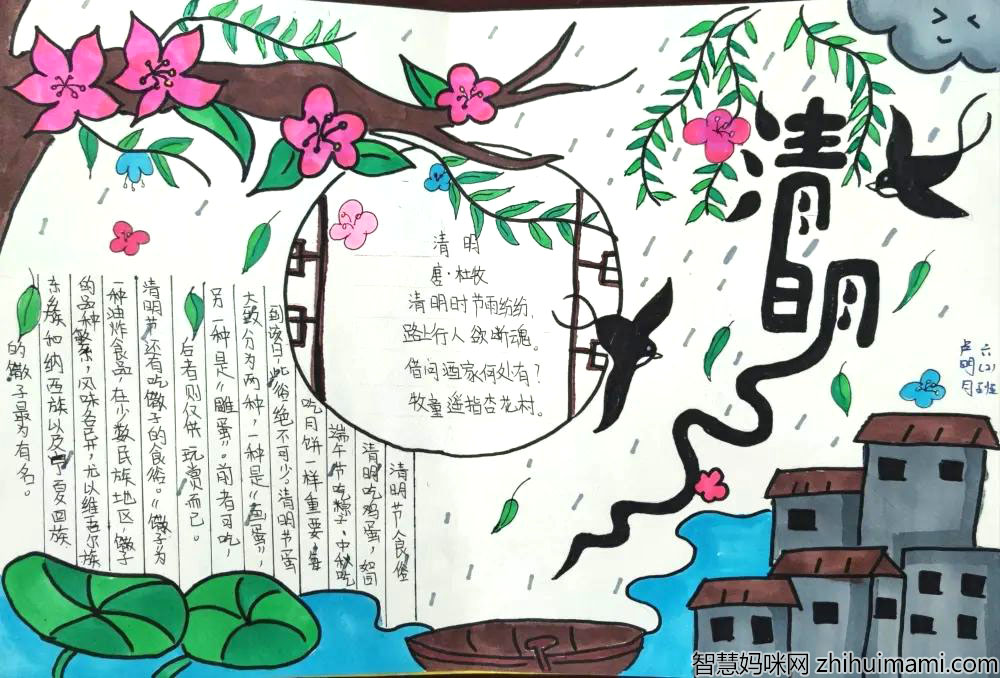 清明
清明
唐·杜牧
清明时节雨纷纷，
路上行人欲断魂。
借问酒家何处有？
牧童遥指杏花村。
六(2)班
卢明月
清明节食俗
清明吃鸡蛋，如同
端午节吃粽子、中秋吃
吃月饼一样重要，每
到该日，此俗绝不可少。清明节蛋
大致分为两种，一种是“画蛋”，
另一种是“雕蛋”。前者可吃，
后者则仅供玩赏而已。
清明节，还有吃馓子的食俗。“馓子”为
一种油炸食品，在少数民族地区，馓子
的品种繁多，风味各异，尤以维吾尔族
东乡族和纳西族以及宁夏回族
的馓子最为有名。
智慧妈咪网 zhihuimami.com